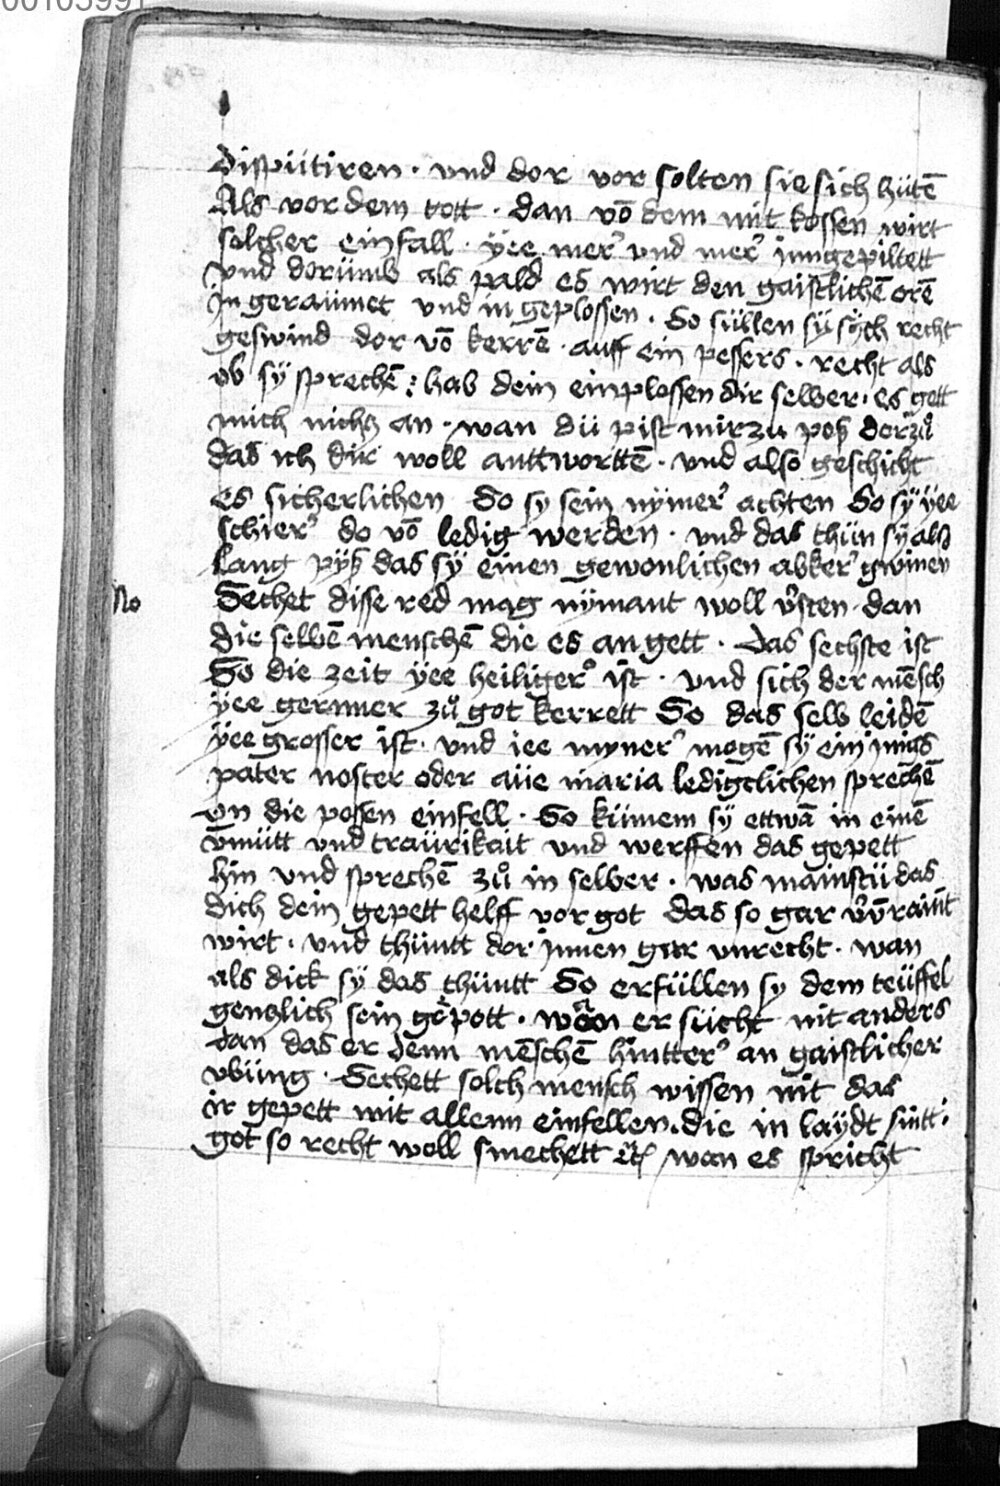 00105991
dispütiren · vnd dor vor solten sie sich hütē
Als vor dem tott · dan vō dem mit kossen wirt
solcher einfall · ÿee mer vnd mer jnngepiltett
vnd dorümb als pald es wirt den gaistlichē orē
jn geraümet vnd in geplossen · So süllen sÿ sÿch recht
geswind dor vō kerrē · auff ein pessers · recht als
ob sÿ sprechē : hab dein einplossen dir selber · es gett
mich nichcz an · wan dü pist mir zu poß dorzů
das ich dir woll anttworttē · vnd also geschicht
es sicherlichen So sy sein nÿmer achten So sÿ ÿee
schier do vō ledig werden · vnd das thün sÿ als
lang pÿß das sÿ einen gewonlichen abker gwinen
No Sechet disse red mag nÿmant woll v̄sten · dan
die selbē menschē die es an gett · Das sechste ist
So die zeit ÿee heiliger ist · vnd sich der mēsch
ÿee gernner zů got kerrett So das selb leidē
ÿee grosser ist · vnd iee mÿner mogē sÿ ein jnigs
pater noster oder aüe maria ledigclichen sprechē
on die posen einfell · So kümem sÿ ettwā in einē
vmütt vnd traürikait vnd werffen das gepett
hin vnd sprechē zů in selber · was mainstü das
dich dein gepett helff vor got das so gar v̄v̄raint
wirt · vnd thüntt dor jnnen gar vnrecht · wan
als dick sÿ das thüntt So erfüllen sy dem teüffel
genczlich sein gepott · wan er sücht nit anders
dan das er denn mēschē hintter an gaistlicher
vbüng · Sechett solch mensch wissen nit das
ir gepett mit allenn einfellen · die in laÿdt sintt ·
got so recht woll smechett ⁊c̄ wan es spricht